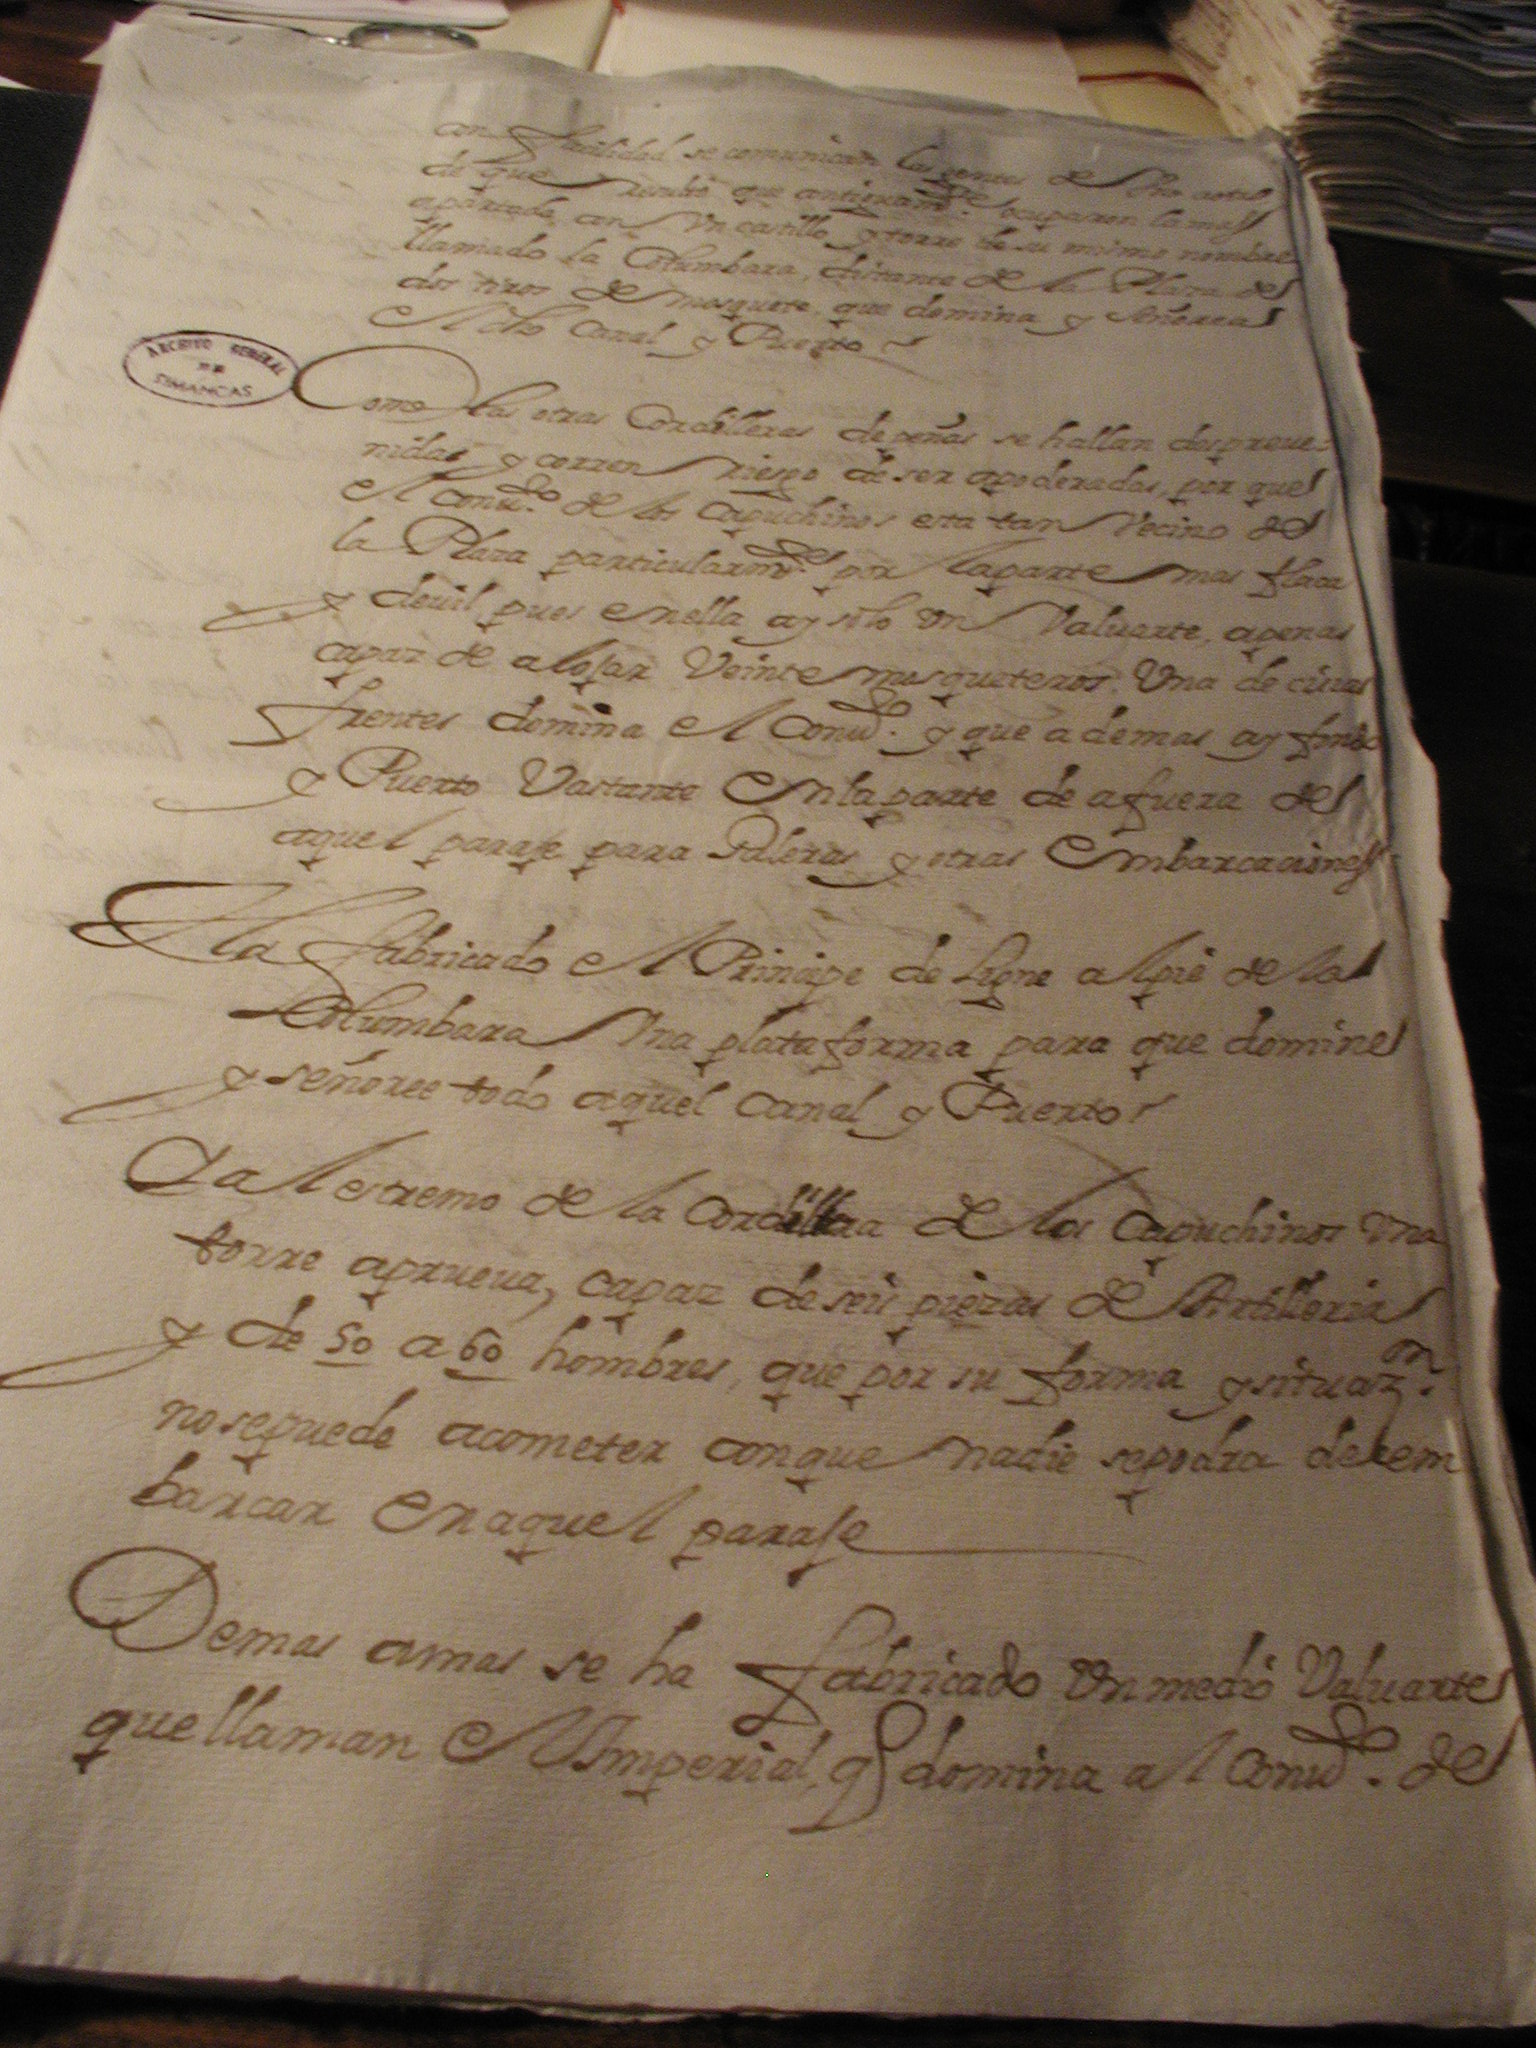 con facilidad se comunican las gentes de
de que resultó que antiguam.te ocuparon la mas
apartada con Un castillo y torre de su mismo nombre
llamado la Columbara, distante de la Plaza
dos tiros de mosquete, que domina y señorea
el dho Canal y Puerto
ARCHIVO GENERAL
DE
SIMANCAS
Como las otras Cordilleras de peñas se hallan despreue
nidas y corren riesgo de ser apoderadas, por que
el Conu.to de los Capuchinos esta tan Vecino de
la Plaza particularm.te por la parte mas flaca
y deuil, pues en ella ay solo Un Valuarte, apenas
capaz de alojar Veinte mosqueteros. Una de cuias
frentes domina el Conu.to y que ademas ay fondo
y Puerto Vastante en la parte de afuera de
aquel paraje para Galeras y otras Embarcaciones
Ha fabricado el Principe de Ligne al pie de la
Columbara Una plataforma para que domine
y señoree todo aquel Canal y Puerto
Y al estremo de la Cordillera de los Capuchinos Una
torre aprueua, capaz de seis piezas de Artilleria
y de 50 a 60 hombres, que por su forma y situaz.on
no se puede acometer con que nadie se podra desem
barcar en aquel paraje
Demas amas se ha fabricado Un medio Valuarte
que llaman el Imperial, q domina al Conu.to de